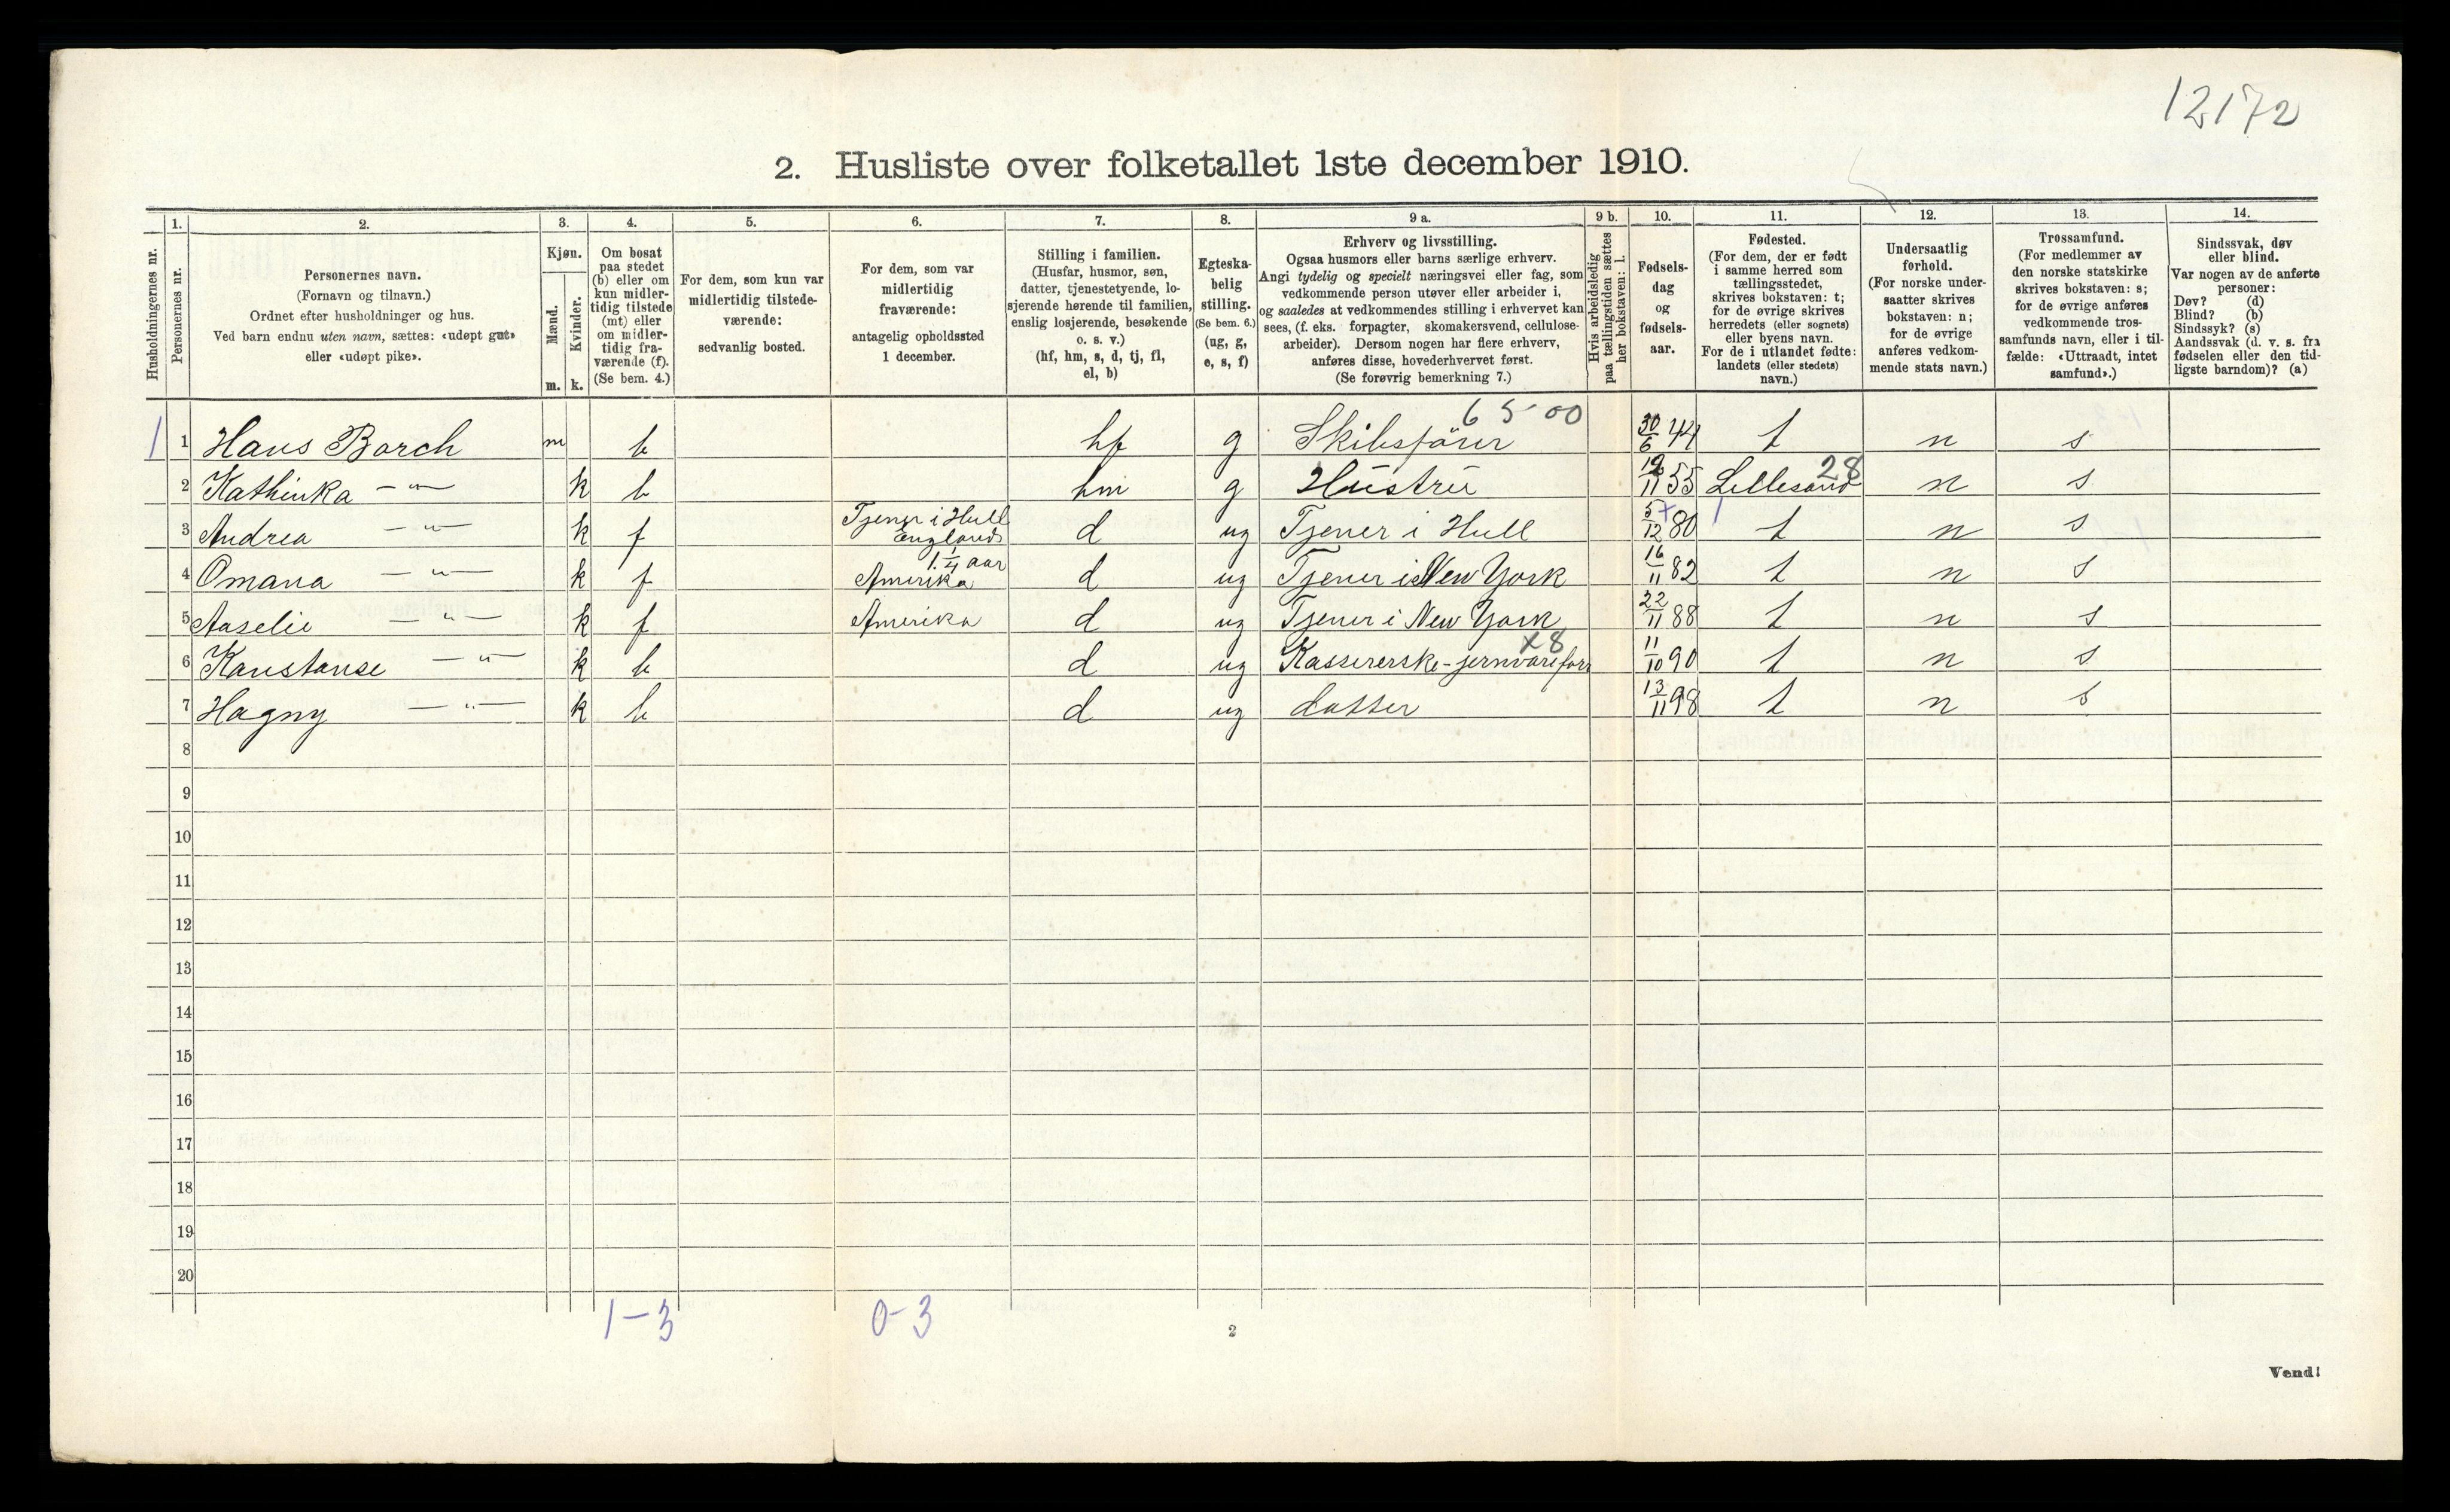 12172
2. Husliste over folketallet 1ste december 1910.
1. 2. 3. 4. 5. 6. 7. 8. 9 a. 9 b. 10. 11. 12. 13. 14.
Husholdningernes nr.
Personernes nr.
Personernes navn.
(Fornavn og tilnavn.)
Ordnet efter husholdninger og hus.
Ved barn endnu uten navn, sættes: «udøpt gut»
eller «udøpt pike».
Kjøn.
Mænd.
Kvinder.
m. k.
Om bosat
paa stedet
(b) eller om
kun midler-
tidig tilstede
(mt) eller
om midler-
tidig fra-
værende (f).
(Se bem. 4.)
For dem, som kun var
midlertidig tilstede-
værende:
sedvanlig bosted.
For dem, som var
midlertidig
fraværende:
antagelig opholdssted
1 december.
Stilling i familien.
(Husfar, husmor, søn,
datter, tjenestetyende, lo-
sjerende hørende til familien,
enslig losjerende, besøkende
o. s. v.)
(hf, hm, s, d, tj, fl,
el, b)
Egteska-
belig
stilling.
(Se bem. 6.)
(ug, g,
e, s, f)
Erhverv og livsstilling.
Ogsaa husmors eller barns særlige erhverv.
Angi tydelig og specielt næringsvei eller fag, som
vedkommende person utøver eller arbeider i,
og saaledes at vedkommendes stilling i erhvervet kan
sees, (f. eks. forpagter, skomakersvend, cellulose-
arbeider). Dersom nogen har flere erhverv,
anføres disse, hovederhvervet først.
(Se forøvrig bemerkning 7.)
Hvis arbeidsledig
paa tællingstiden sættes
her bokstaven: l.
Fødsels-
dag
og
fødsels-
aar.
Fødested.
(For dem, der er født
i samme herred som
tællingsstedet,
skrives bokstaven: t;
for de øvrige skrives
herredets (eller sognets)
eller byens navn.
For de i utlandet fødte:
landets (eller stedets)
navn.)
Undersaatlig
forhold.
(For norske under-
saatter skrives
bokstaven: n;
for de øvrige
anføres vedkom-
mende stats navn.)
Trossamfund.
(For medlemmer av
den norske statskirke
skrives bokstaven: s;
for de øvrige anføres
vedkommende tros-
samfunds navn, eller i til-
fælde: «Uttraadt, intet
samfund».)
Sindssvak, døv
eller blind.
Var nogen av de anførte
personer:
Døv? (d)
Blind? (b)
Sindssyk? (s)
Aandssvak (d. v. s. fra
fødselen eller den tid-
ligste barndom)? (a)
6500
1 1 Hans Borch m b hf g Skibsfører 30/6 44 t n s
28
2 Kathinka -"- k b hm g Hustru 11 55 Lillesand n s
3 Andrea -"- k f Tjener i Hull England d ug Tjener i Hull 5/12 80 t n s
1 1/4 aar
4 Omana -"- k f Amerika d ug Tjener i New York 16/11 82 t n s
5 Aaselie -"- k f Amerika d ug Tjener i New York 22/11 88 t n s
x8
6 Konstanse -"- k b d ug Kassererske-jernvareforr 11/10 90 t n s
7 Hagny -"- k b d ug datter 13/11 98 t n s
8
9
10
11
12
13
14
15
16
17
18
19
20
1-3 0-3
2
Vend!